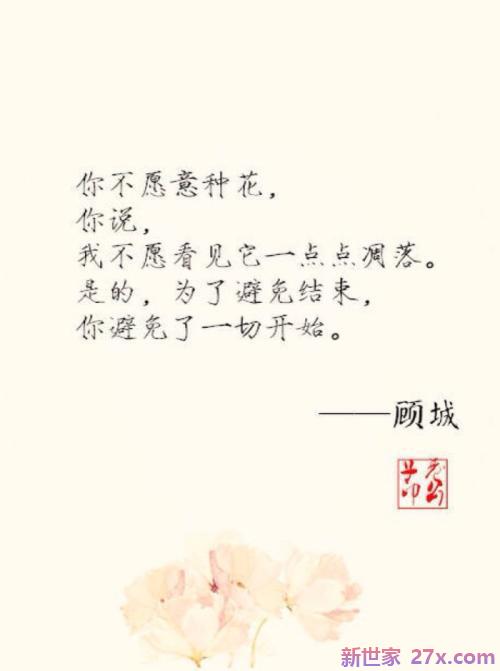 你不愿意种花，
你说，
我不愿看见它一点点凋落。
是的，为了避免结束，
你避免了一切开始。
——顾城
新世家 27x.com